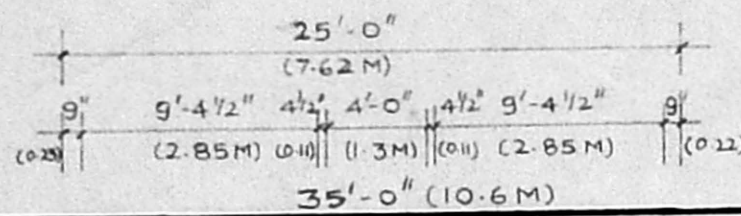 25'-0"
(7.62 M)
9" 9'-4 1/2" 4 1/2" 4'-0" 4 1/2" 9'-4 1/2" 9"
(0.23) (2.85 M) (0.11) (1.3 M) (0.11) (2.85 M) (0.22)
35'-0" (10.6 M)